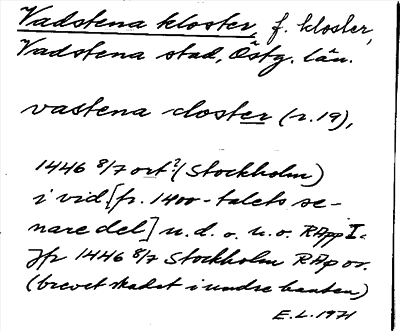 Vadstena kloster, f. kloster,
Vadstena stad, Östg. län.
vastena closter (r. 19),
1446 8/7 ort? (Stockholm)
i vid [fr. 1400-talets se-
nare del] u. d. o. u. o. RApp I.
Jfr 1446 8/7 Stockholm RAp or.
(brevet skadat i undre kanten)
E.L. 1971